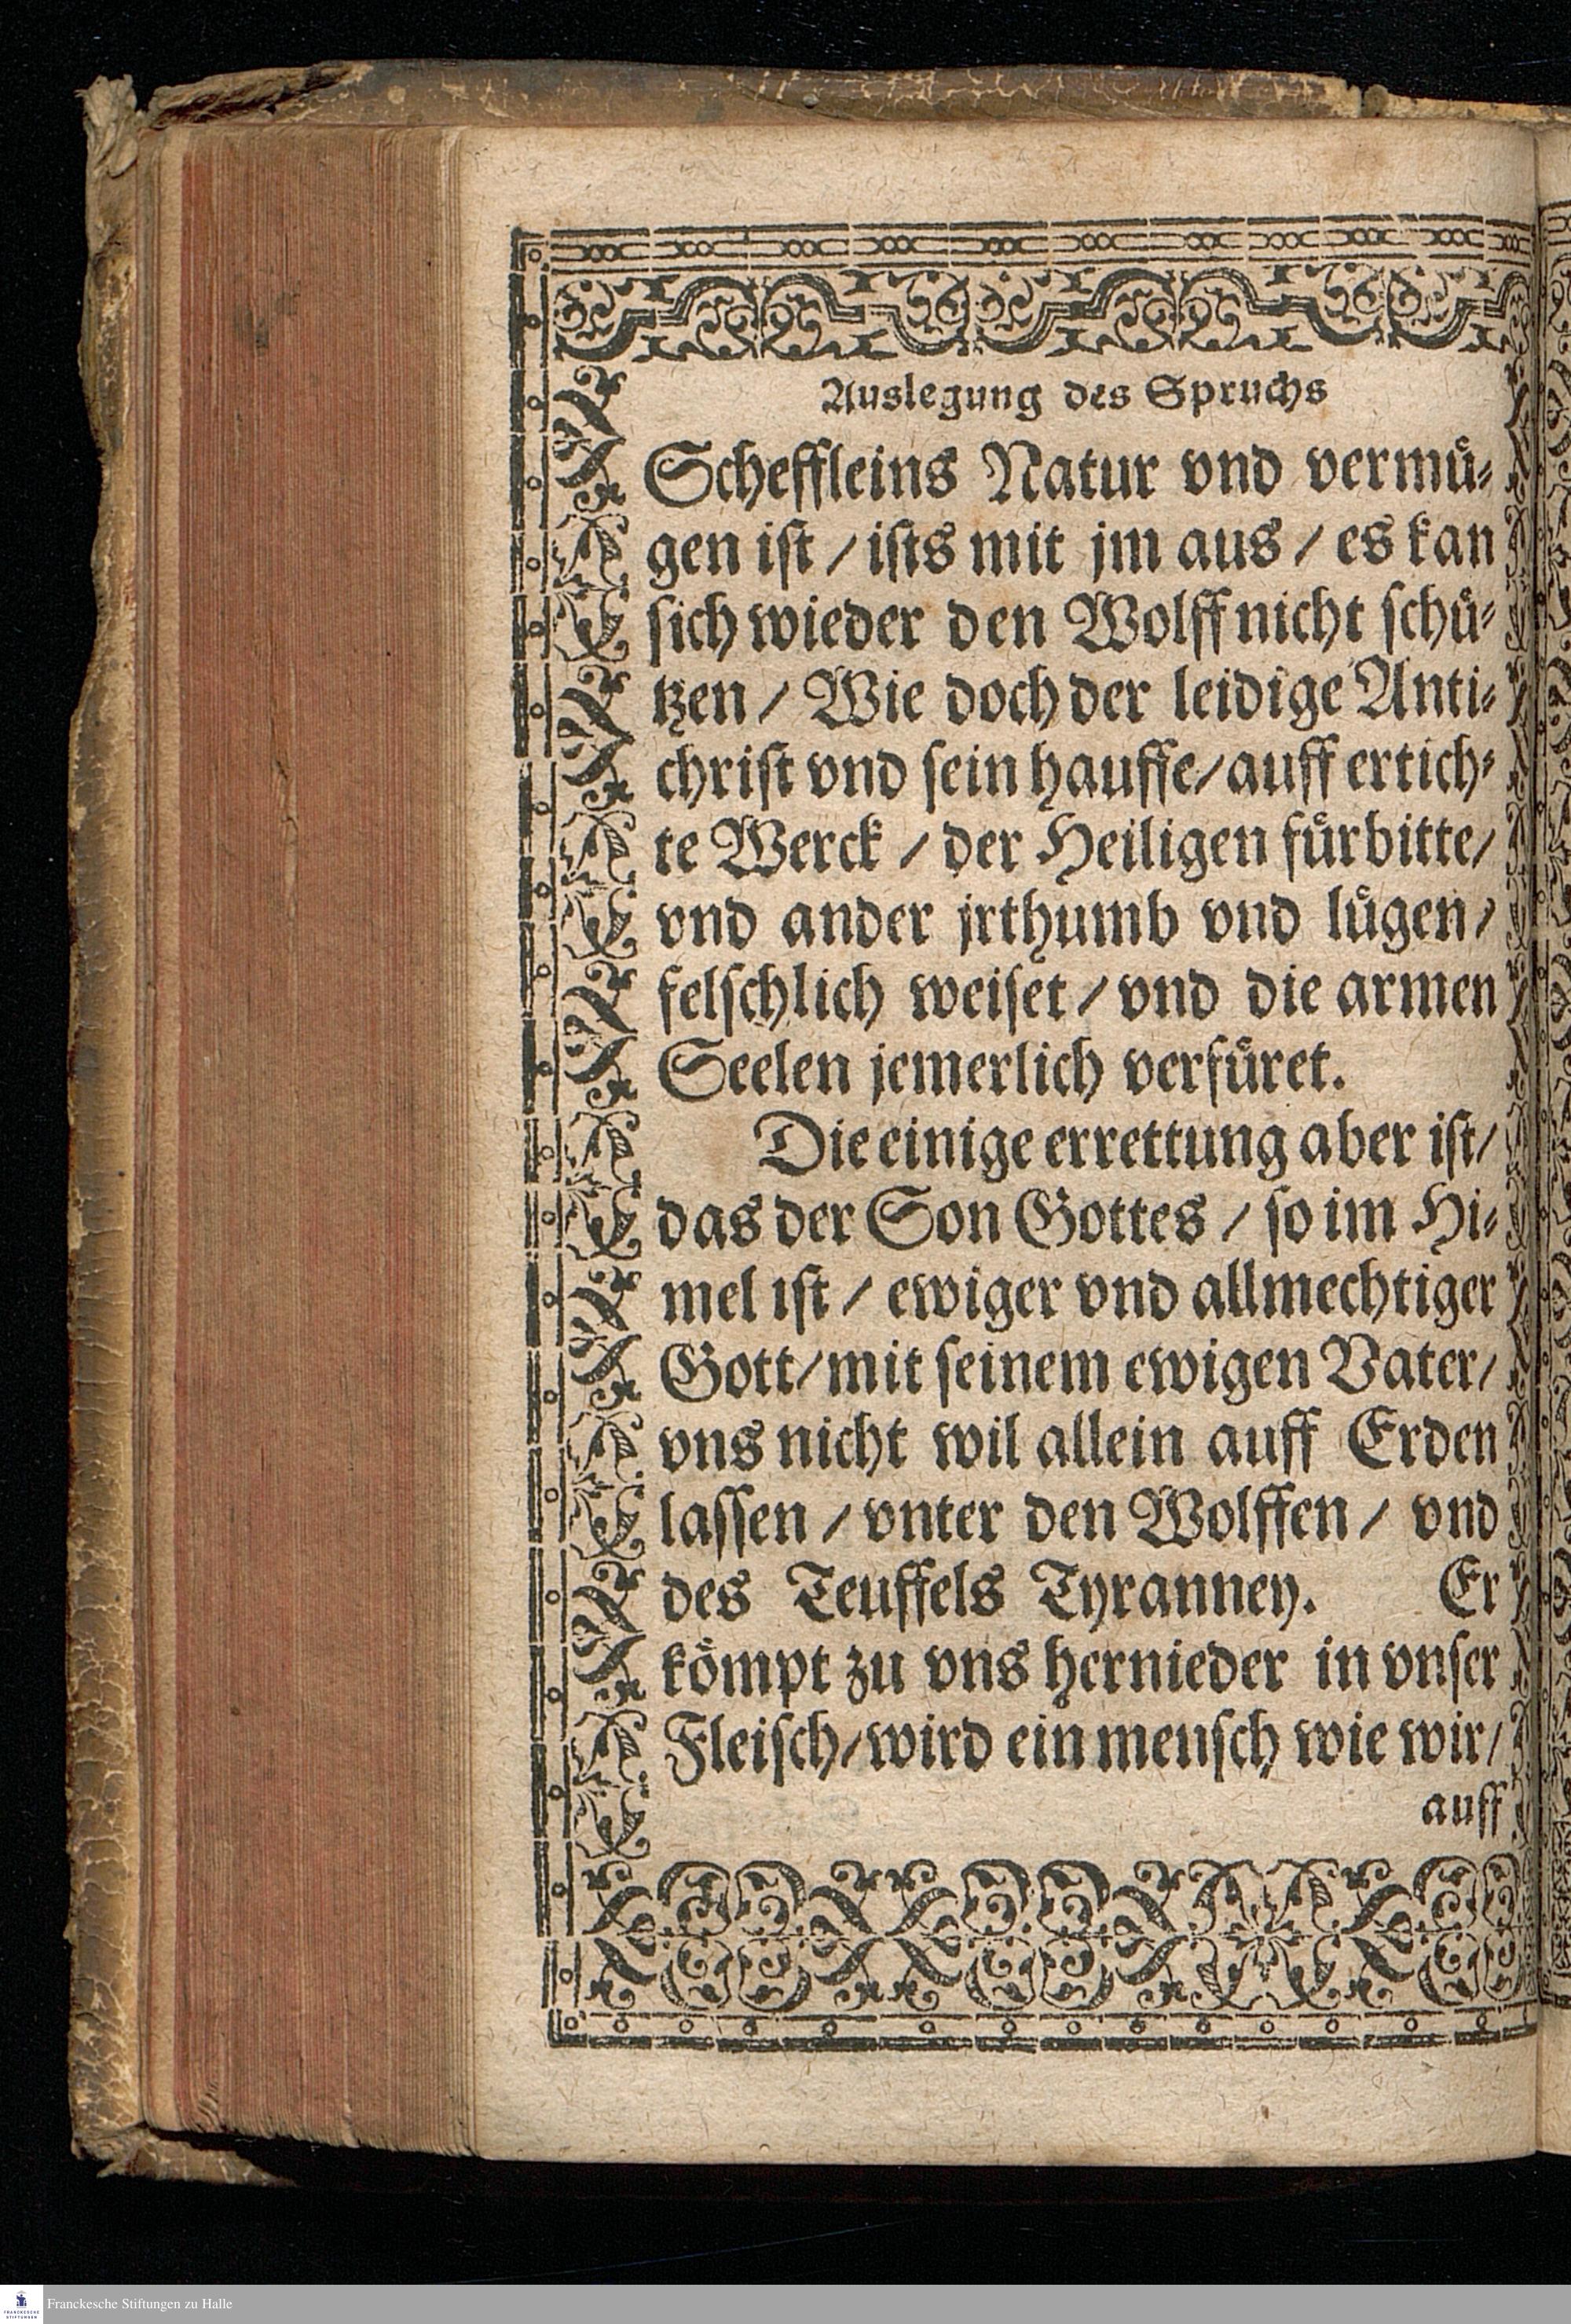 Auslegung des Spruchs
Scheffleins Natur vnd vermuͤ⸗
gen ist / ists mit jm aus / es kan
sich wieder den Wolff nicht schuͤ⸗
tzen / Wie doch der leidige Anti⸗
christ vnd sein hauffe / auff ertich⸗
te Werck / der Heiligen fuͤrbitte /
vnd ander jrthumb vnd luͤgen /
felschlich weiset / vnd die armen
Seelen jemerlich verfuͤret.
Die einige errettung aber ist /
das der Son Gottes / so im Hi⸗
mel ist / ewiger vnd allmechtiger
Gott / mit seinem ewigen Vater /
vns nicht wil allein auff Erden
lassen / vnter den Wolffen / vnd
des Teuffels Tyranney. Er
koͤmpt zu vns hernieder in vnser
Fleisch / wird ein mensch wie wir /
auff
FRANCKESCHE
STIFTUNGEN
Franckesche Stiftungen zu Halle